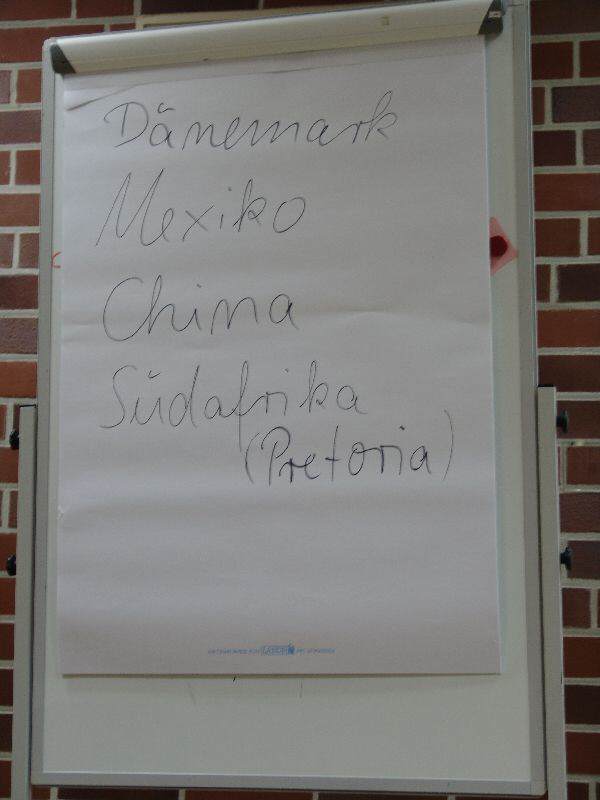 Dänemark
Mexiko
China
Südafrika
(Pretoria)